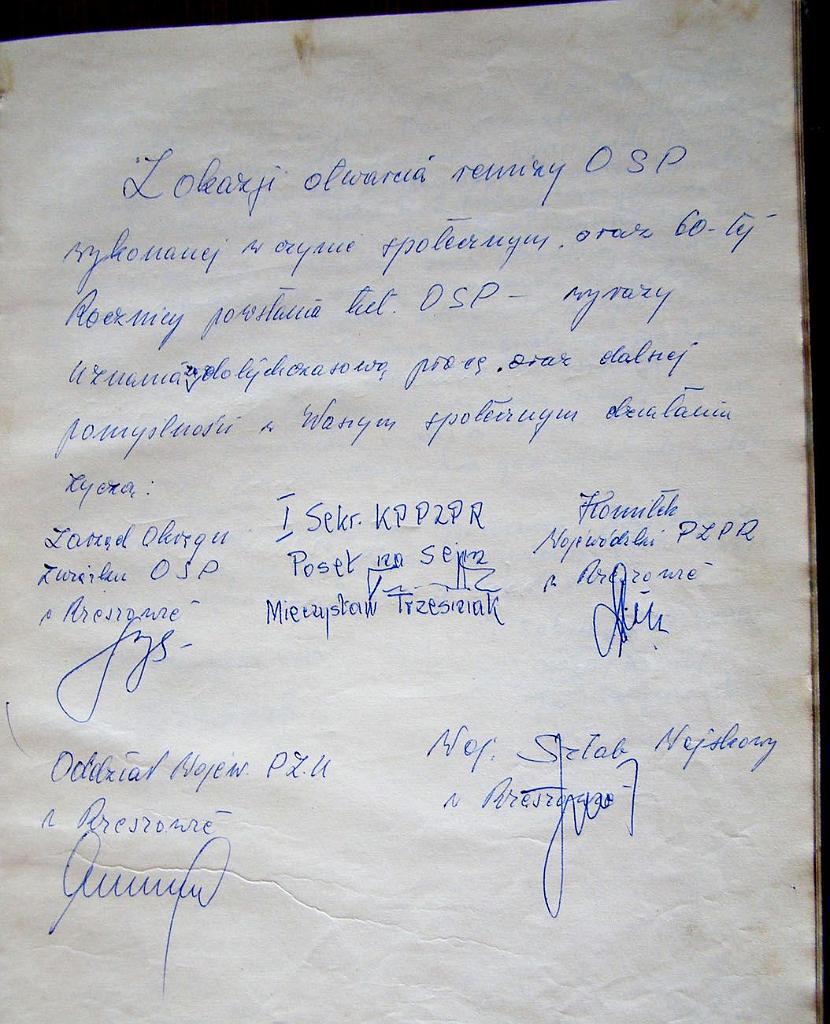 Z okazji otwarcia remizy OSP
wykonanej w czynie społecznym, oraz 60-tej
Rocznicy powstania tut. OSP - wyrazy
uznania za dotychczasową pracę, oraz dalszej
pomyślności w Waszym społecznym działaniu
życzą:
Zarząd Okręgu
Związku OSP
w Rzeszowie
I Sekr. KP PZPR
Poseł na Sejm
Mieczysław Trzesiziak
Komitet
Wojewódzki PZPR
w Rzeszowie
Oddział Wojew. PZU
w Rzeszowie
Woj. Sztab Wojskowy
w Rzeszowie